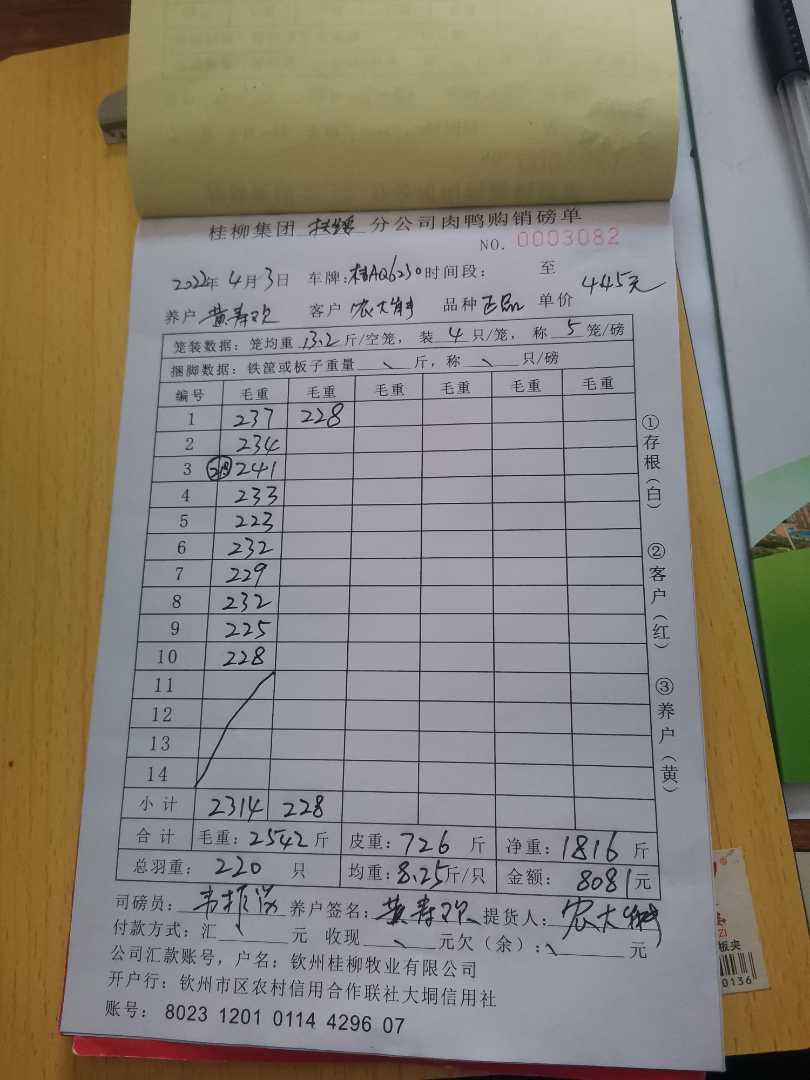 桂柳集团 扶绥 分公司肉鸭购销磅单
NO. 0003082
2022年 4月3日 车牌:桂AQ6230 时间段: 至
养户 黄寿欢 客户 农大 品种 正品 单价 4.45元
笼装数据:笼均重 13.2 斤/空笼, 装 4 只/笼, 称 5 笼/磅
捆脚数据:铁筐或板子重量 斤,称 只/磅
编号 毛重 毛重 毛重 毛重 毛重 毛重
1 237 228
2 234
3 241
4 233
5 223
6 232
7 229
8 232
9 225
10 228
11
12
13
14
小计 2314 228
合计 毛重: 2542 斤 皮重: 726 斤 净重: 1816 斤
总羽重: 220 只 均重: 8.25斤/只 金额: 8081元
司磅员: 韦 养户签名: 黄寿欢 提货人: 农大
付款方式:汇 元 收现 元欠(余): 元
公司汇款账号,户名:钦州桂柳牧业有限公司
开户行:钦州市区农村信用合作联社大垌信用社
账号: 8023 1201 0114 4296 07
①存根(白) ②客户(红) ③养户(黄)
板夹
0136